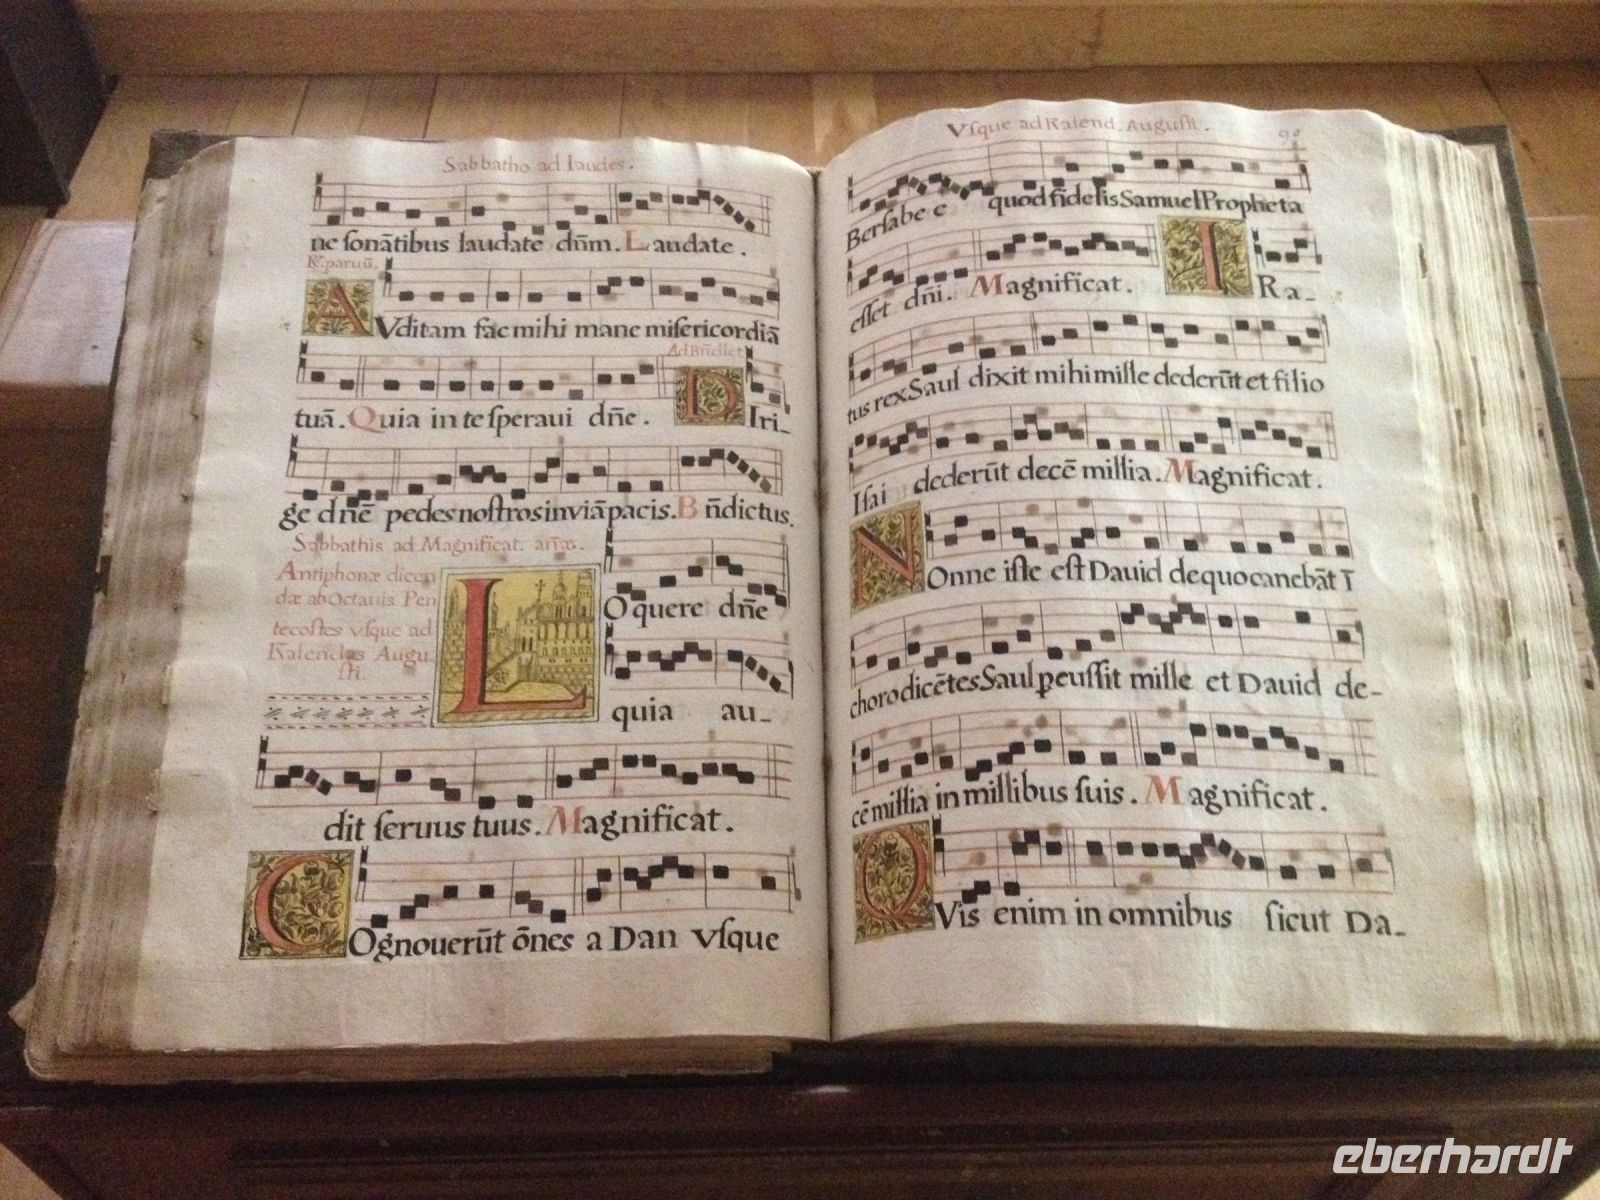 Sabbatho ad laudes.
ne sonãtibus laudate dñm. Laudate.
R. paruũ.
AVditam fac mihi mane misericordiã
Ad Bñdict
tuã. Quia in te speraui dñe. DIri-
ge dñẽ pedes nostros in viã pacis. Bñdictus.
Sabbathis ad Magnificat. añæ.
Antiphonæ dicen
dæ ab Octauis Pen
tẽcostes vsque ad
Kalendas Augu
sti.
LOquere dñe
quia au-
dit seruus tuus. Magnificat.
COgnouerũt õnes a Dan vsque
Vsque ad Kalend. Augusti. 90
Bersabee quod fidelis Samuel Propheta
esset dñi. Magnificat. IRa-
tus rex Saul dixit mihi mille dederũt et filio
Isai dederũt decẽ millia. Magnificat.
NOnne iste est Dauid de quo canebãt ĩ
choro dicẽtes Saul ꝑcussit mille et Dauid de-
cẽ millia in millibus suis. Magnificat.
QVis enim in omnibus sicut Da-
eberhardt